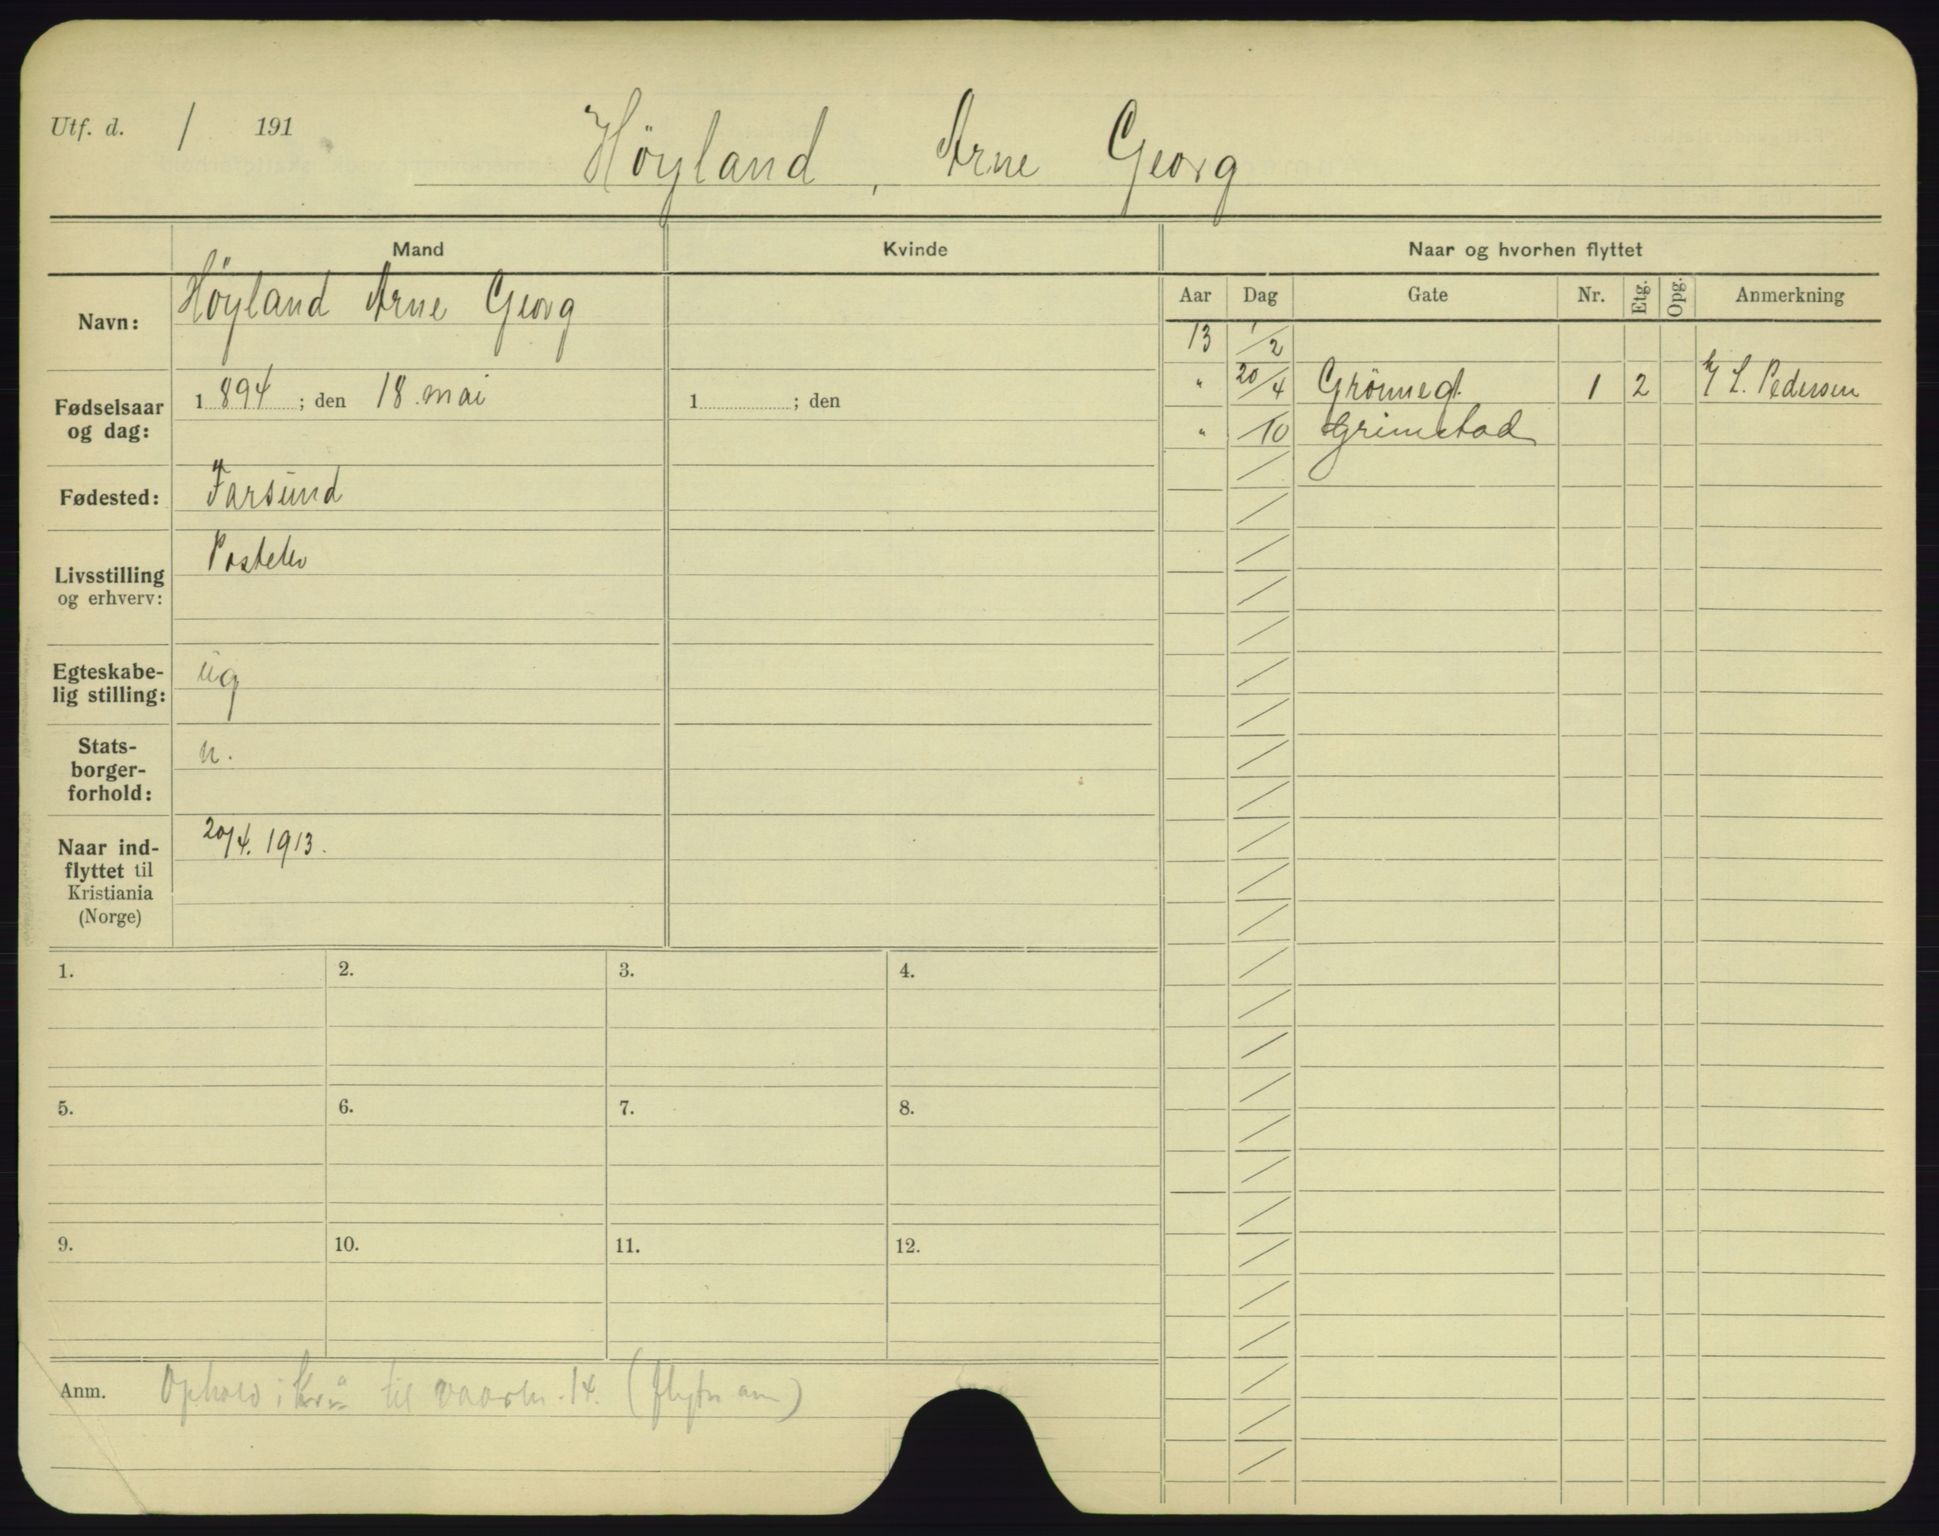 Utf. d. / 191
Höyland, Arne Georg
Mand
Kvinde
Naar og hvorhen flyttet
Navn:
Höyland Arne Georg
Aar Dag Gate Nr. Etg. Opg. Anmerkning
13 1/2
" 20/4 Grönnegt. 1 2 L. Pedersen
" /10 Grimstad
Fødselsaar
og dag:
1894; den 18 mai
1 ; den
Fødested:
Farsund
Livsstilling
og erhverv:
Postelev
Egteskabe-
lig stilling:
ug
Stats-
borger-
forhold:
n.
Naar ind-
flyttet til
Kristiania
(Norge)
20/4. 1913.
1. 2. 3. 4.
5. 6. 7. 8.
9. 10. 11. 12.
Anm. Ophold i Kra til vaaren 14. (flytn an)